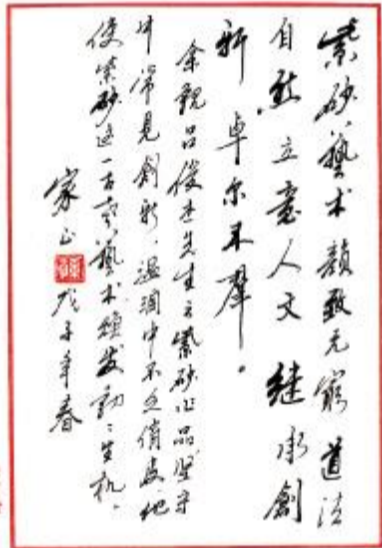 紫砂艺术韻致无窮道法
自然立意人文继承創
新卓尔不群。
余觀吕俊杰先生之紫砂作品坚守
中常見創新，温润中不乏俏皮，他
使紫砂这一古老艺术煥发勃勃生机。
家正 戊子年春